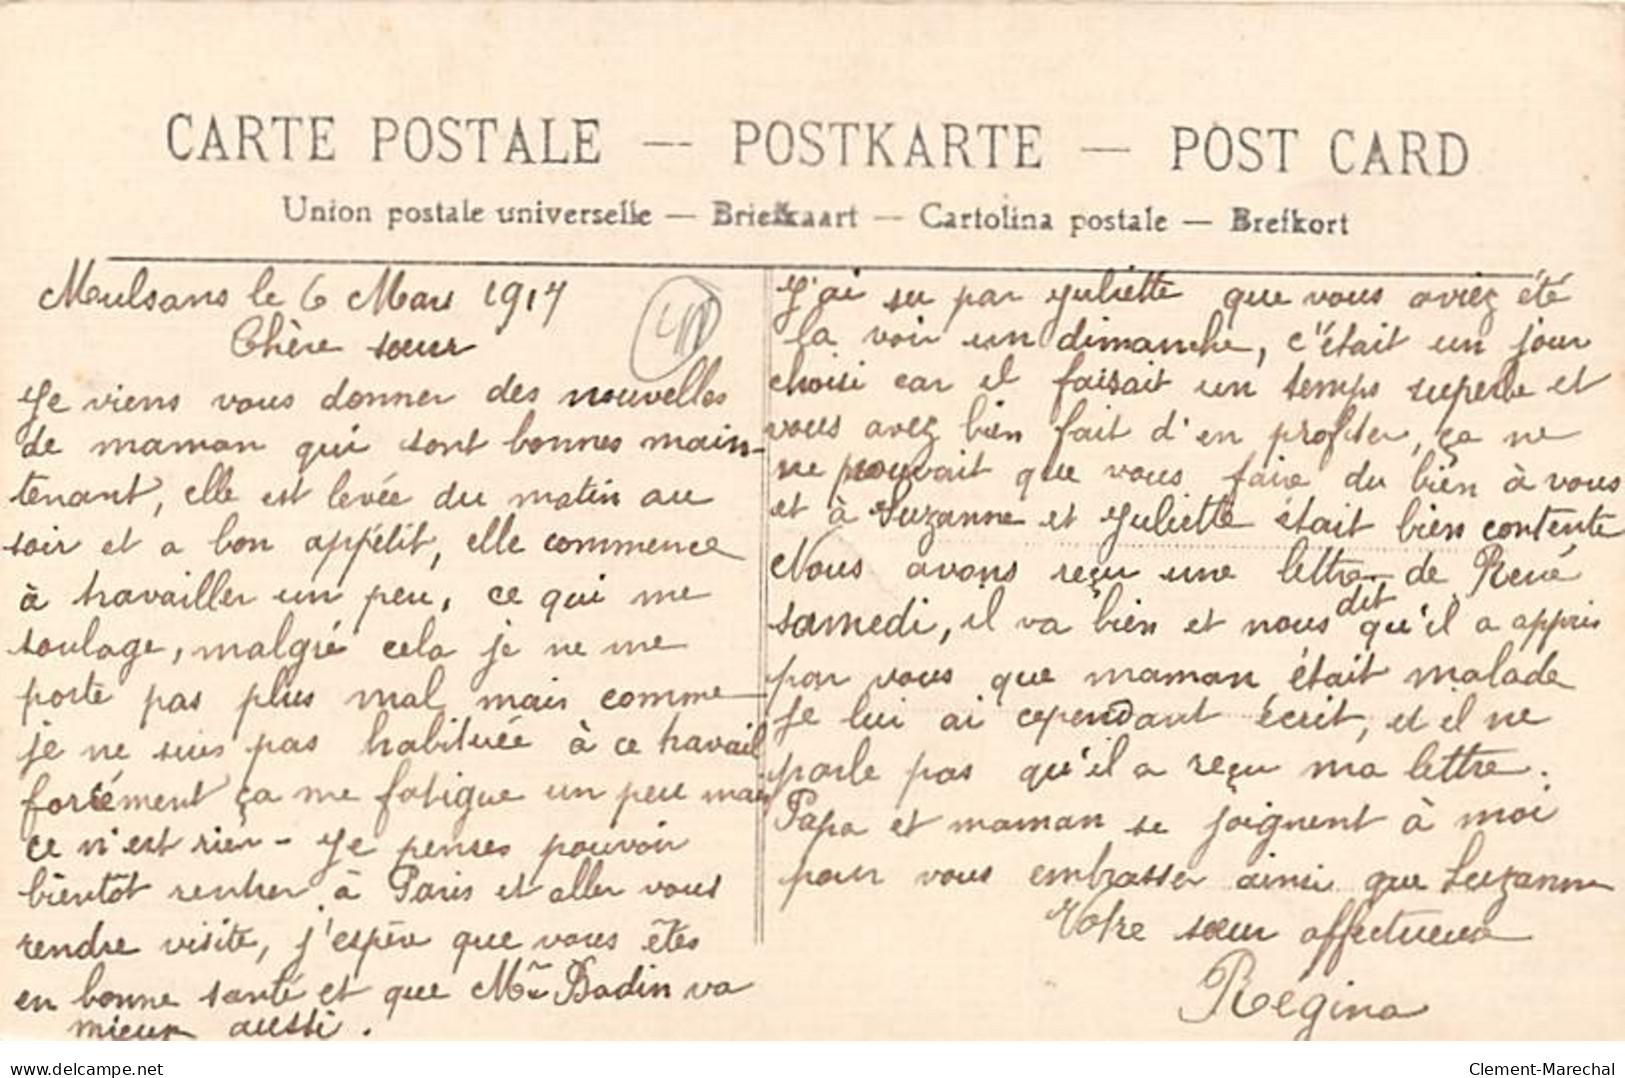 CARTE POSTALE — POSTKARTE — POST CARD
Union postale universelle — Briefkaart — Cartolina postale — Brefkort
Meulsans le 6 Mars 1917
Chère sœur
Je viens vous donner des nouvelles
de maman qui sont bonnes main-
tenant, elle est levée du matin au
soir et a bon appétit, elle commence
à travailler un peu, ce qui me
soulage, malgré cela je ne me
porte pas plus mal mais comme
je ne suis pas habituée à ce travail
forcément ça me fatigue un peu mais
ce n'est rien - Je penses pouvoir
bientôt rentrer à Paris et aller vous
rendre visite, j'espère que vous êtes
en bonne santé et que Mme Badin va
mieux aussi.
J'ai su par Juliette que vous aviez été
la voir un dimanche, c'était un jour
choisi car il faisait un temps superbe et
vous avez bien fait d'en profiter, ça ne
ne pouvait que vous faire du bien à vous
et à Suzanne et Juliette était bien contente
Nous avons reçu une lettre de René
samedi, il va bien et nous dit qu'il a appris
par vous que maman était malade
je lui ai cependant écrit, et il ne
parle pas qu'il a reçu ma lettre.
Papa et maman se joignent à moi
pour vous embrasser ainsi que Suzanne
Votre sœur affectueuse
Régina
Delcampe.net
Clement-Marechal